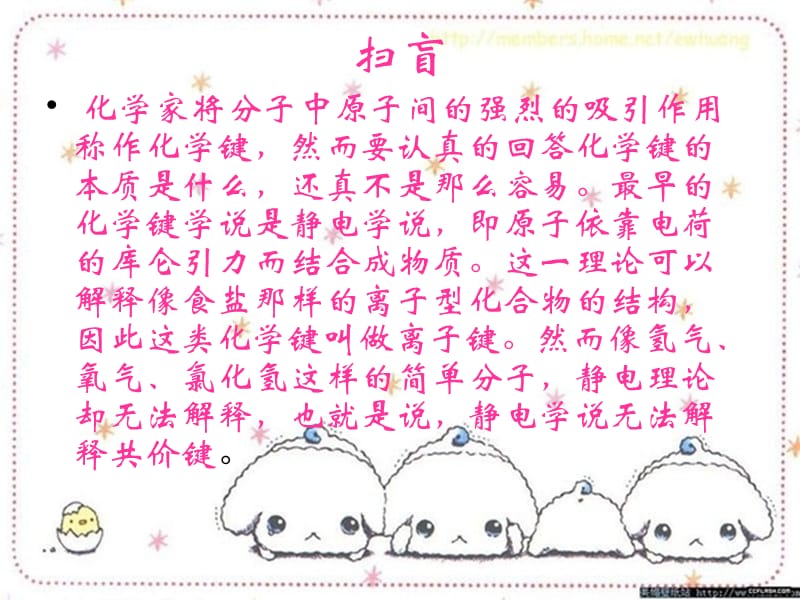 http://members.home.net/ewhuang
扫盲
• 化学家将分子中原子间的强烈的吸引作用
称作化学键，然而要认真的回答化学键的
本质是什么，还真不是那么容易。最早的
化学键学说是静电学说，即原子依靠电荷
的库仑引力而结合成物质。这一理论可以
解释像食盐那样的离子型化合物的结构，
因此这类化学键叫做离子键。然而像氢气、
氧气、氯化氢这样的简单分子，静电理论
却无法解释，也就是说，静电学说无法解
释共价键。